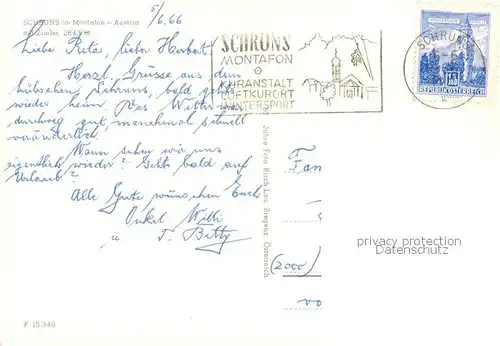 SCHRUNS im Montafon – Austria
mit Zimba, 2643 m
5/6.66
Liebe Rita, lieber Herbert
Herzl. Grüsse aus dem
hübschen Schruns, bald gehts
wieder heim. Das Wetter war
durchweg gut, manchmal schnell
veränderlich.
Wann sehen wir uns
eigentlich wieder? Geht's bald auf
Urlaub?
Alle Gute wünschen Euch
Onkel Willi
u T. Betty
F 15.348
SCHRUNS
MONTAFON
KURANSTALT
LUFTKURORT
WINTERSPORT
SCHRUNS
REPUBLIK ÖSTERREICH
Foto Risch-Lau, Bregenz, Österreich
Fam
(2000)
privacy protection
Datenschutz